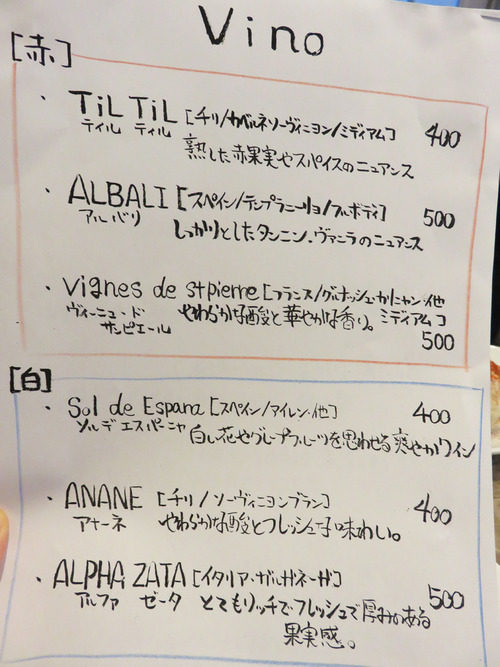 Vino
[赤]
・TiL TiL [チリ/カベルネソーヴィニヨン/ミディアム] 400
ティル ティル 熟した赤果実やスパイスのニュアンス
・ALBALI [スペイン/テンプラニーリョ/フルボディ] 500
アルバリ しっかりとしたタンニン・ヴァニラのニュアンス
・Vignes de st pierre [フランス/グルナッシュ・カリニャン・他
ヴィーニュ・ド やわらかな酸と華やかな香り。ミディアム]
サンピエール 500
[白]
・Sol de Espana [スペイン/アイレン・他] 400
ソルデエスパーニャ 白い花やグレープフルーツを思わせる爽やかワイン
・ANANE [チリ/ソーヴィニヨンブラン] 400
アナーネ やわらかな酸とフレッシュな味わい。
・ALPHA ZATA [イタリア・ガルガネーガ] 500
アルファ ゼータ とてもリッチでフレッシュで厚みのある
果実感。